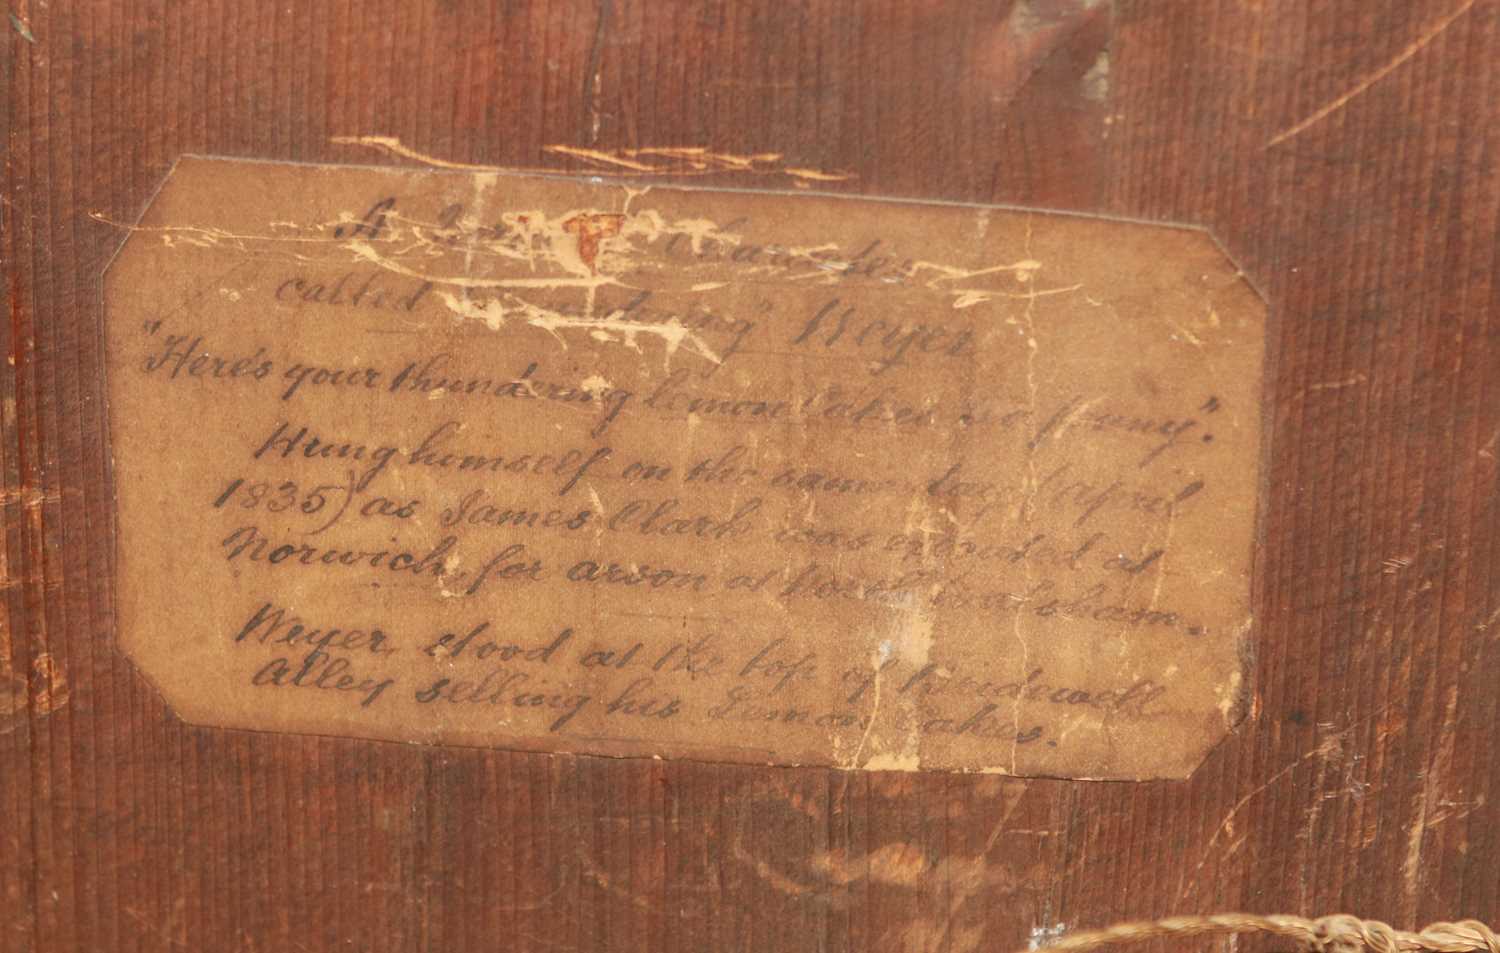 A Character
called "Thundering" Weyer
"Here's your thundering lemon Cakes a penny".
Hung himself on the same day (April
1835) as James Clark was executed at
Norwich, for arson at North Walsham.
Weyer, stood at the top of Bridewell
Alley selling his Lemon Cakes.